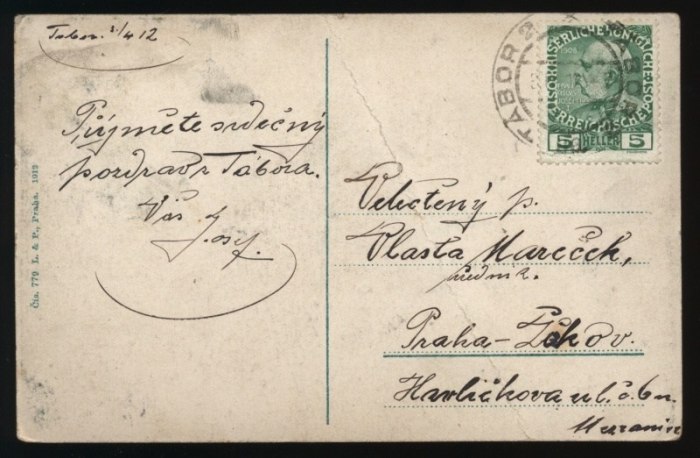 Tabor. 3/4 12
Přijměte srdečný
pozdrav z Tábora.
Váš Josef.
Čís. 779 L. & P., Praha. 1912
TÁBOR 2
TABOR
KAISERLICHE KÖNIGLICHE
ÖSTERREICHISCHE POST
1908
5 HELLER 5
Velectěný p.
Vlasta Mareček,
úředník.
Praha-Žižkov.
Havlíčkova ul. č. 6n.